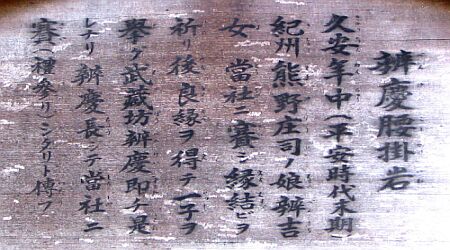 辨慶腰掛岩
久安年中（平安時代末期）
紀州熊野庄司ノ娘辨吉
女 當社ニ賽シ縁結ビヲ
祈リ後良縁ヲ得テ一子ヲ
擧ク武藏坊辨慶即チ是
レナリ 辨慶長シテ當社ニ
賽（種参り）シタリト傳フ